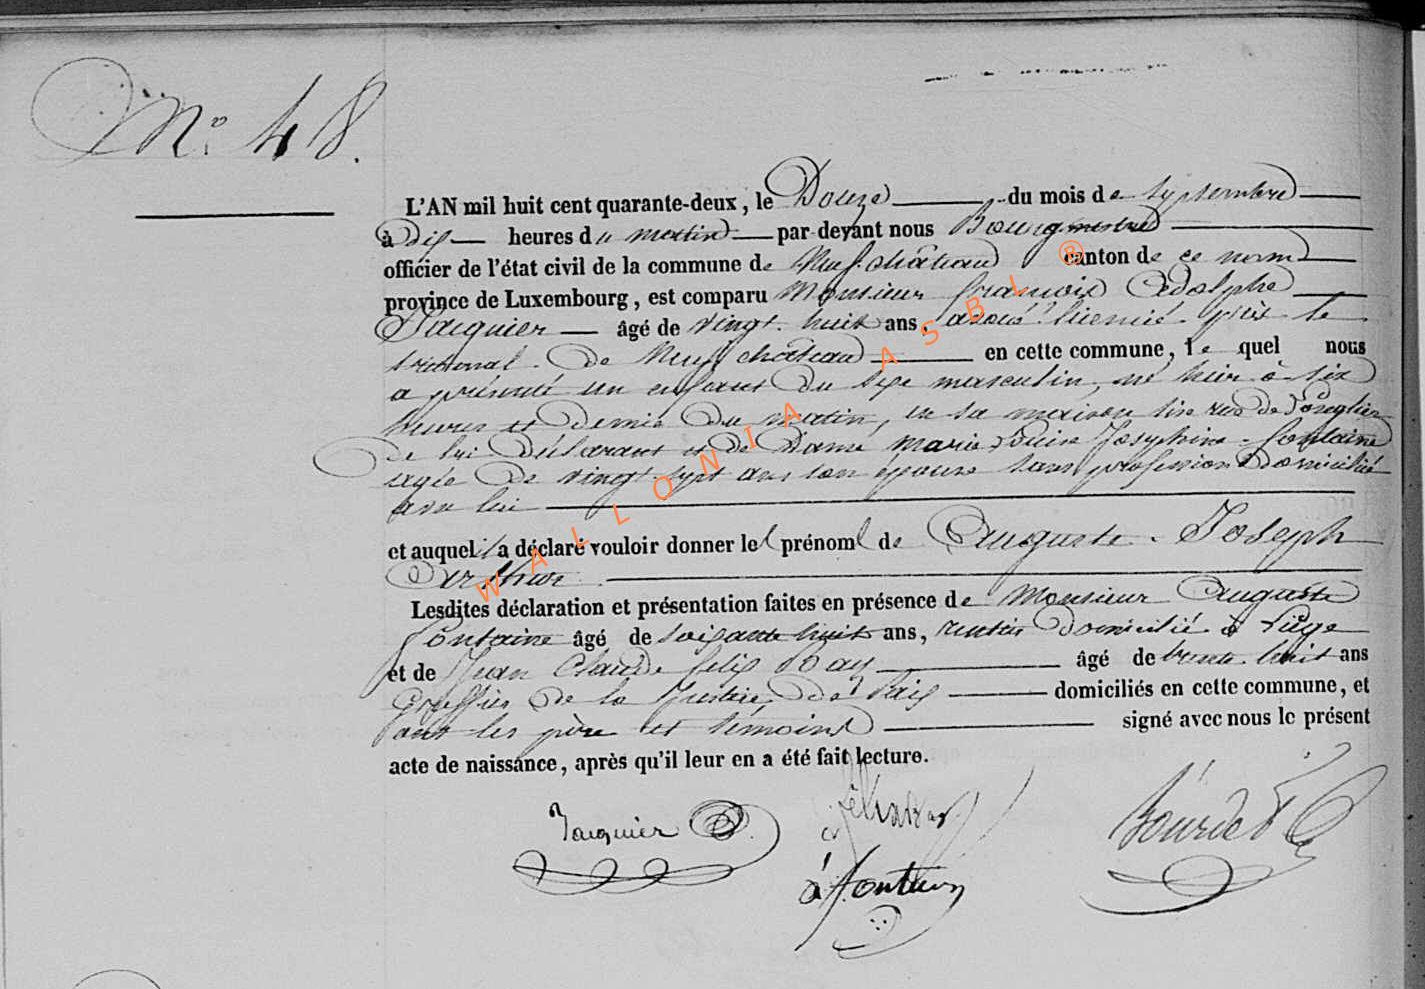 N.° 48.
L'AN mil huit cent quarante-deux, le Douze du mois de septembre
à Dix heures du matin par devant nous Bourgmestre
officier de l'état civil de la commune de Neufchâteau canton de ce nom
province de Luxembourg, est comparu Monsieur François Adolphe
Jacquier âgé de vingt huit ans, avoué licencié près le
tribunal de Neufchâteau en cette commune, lequel nous
a présenté un enfant du sexe masculin, né hier à six
heures et demie du matin, en sa maison sise rue de
de lui Déclarant et de Dame Marie Louise Joséphine fontaine
agée de vingt sept ans son épouse sans profession Domicilié
avec lui
et auquel il a déclaré vouloir donner le prénom de Auguste Joseph
Arthur
Lesdites déclaration et présentation faites en présence de Monsieur Auguste
fontaine âgé de soixante huit ans, rentier Domicilié à Liège
et de Jean Claude felix âgé de trente huit ans
Greffier de la Justice de Paix domiciliés en cette commune, et
ont les père et témoins signé avec nous le présent
acte de naissance, après qu'il leur en a été fait lecture.
Jacquier
fontaine
WALLONIA ASBL ®